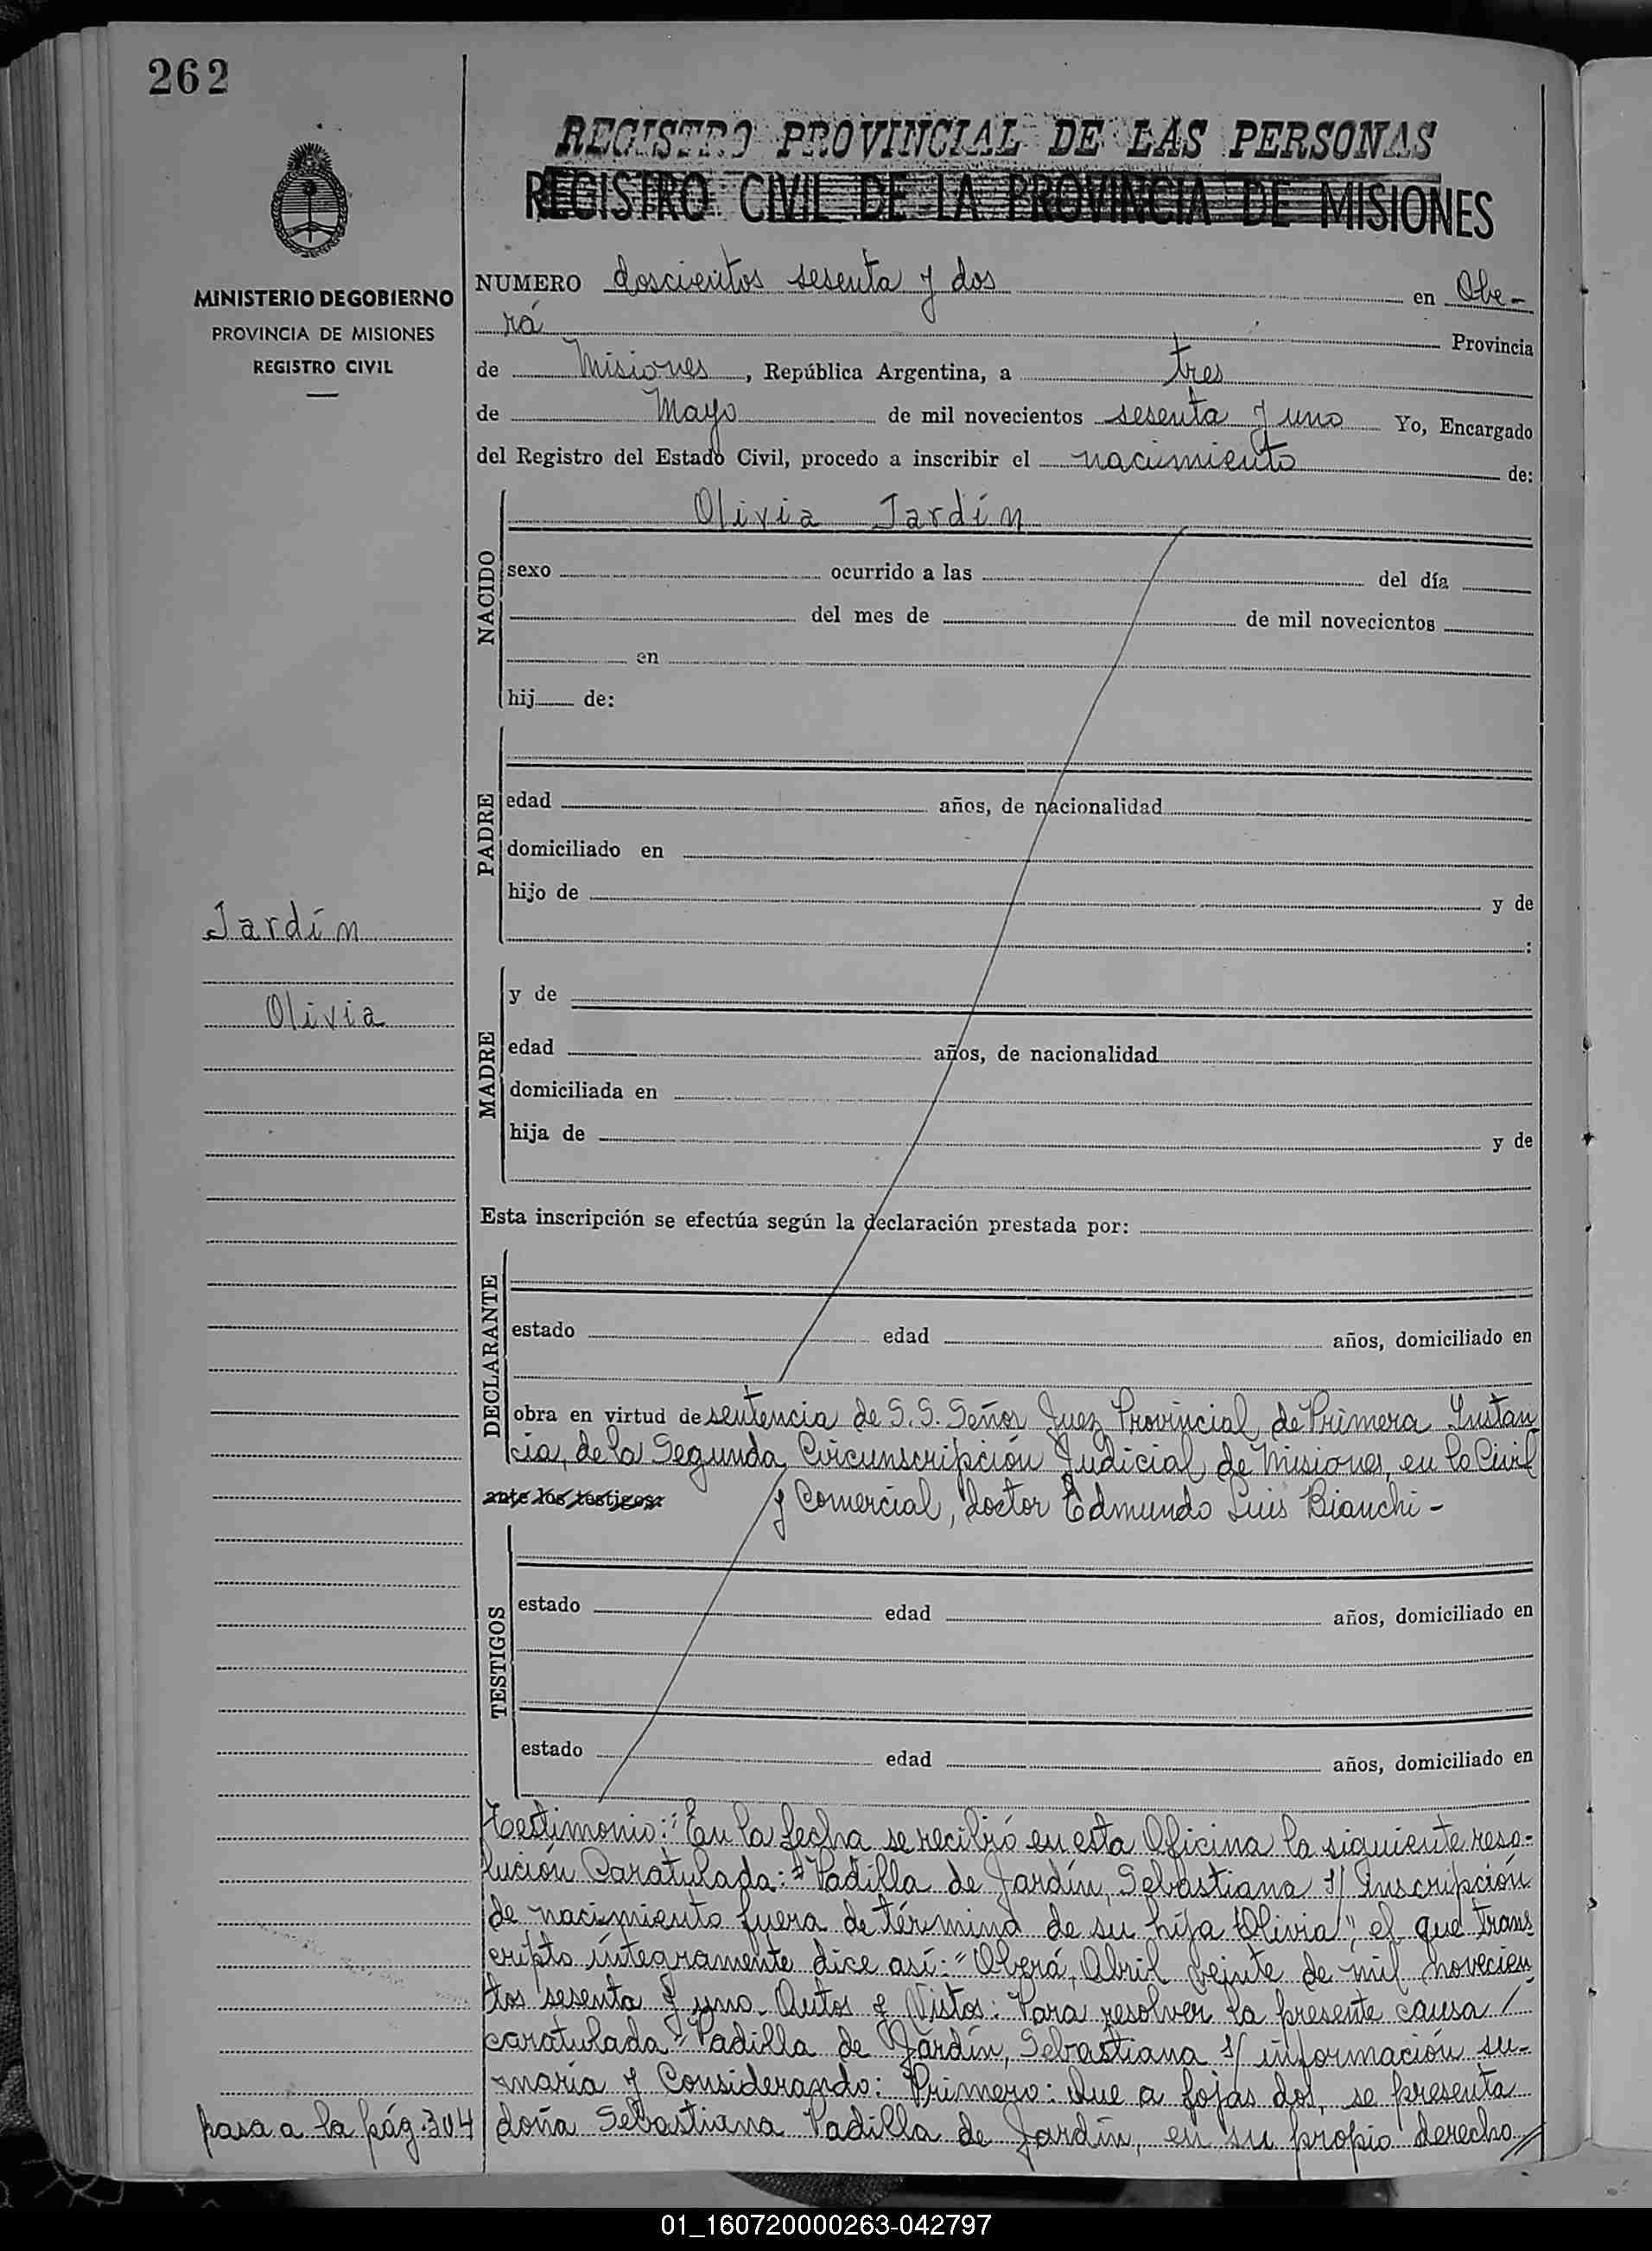 262
REGISTRO PROVINCIAL DE LAS PERSONAS
REGISTRO CIVIL DE LA PROVINCIA DE MISIONES
MINISTERIO DE GOBIERNO
PROVINCIA DE MISIONES
REGISTRO CIVIL
NUMERO doscientos sesenta y dos en Obe-
rá Provincia
de Misiones, República Argentina, a tres
de Mayo de mil novecientos sesenta y uno Yo, Encargado
del Registro del Estado Civil, procedo a inscribir el nacimiento de:
NACIDO
Olivia Jardín
sexo ocurrido a las del día
del mes de de mil novecientos
en
hij de:
PADRE
edad años, de nacionalidad
domiciliado en
hijo de y de
:
Jardín
Olivia
MADRE
y de
edad años, de nacionalidad
domiciliada en
hija de y de
Esta inscripción se efectúa según la declaración prestada por:
DECLARANTE
estado edad años, domiciliado en
obra en virtud de sentencia de S.S. Señor Juez Provincial de Primera Instan
cia, de la Segunda Circunscripción Judicial de Misiones, en lo Civil
ante los testigos: y Comercial, doctor Edmundo Luis Bianchi -
TESTIGOS
estado edad años, domiciliado en
estado edad años, domiciliado en
Testimonio: "En la fecha se recibió en esta Oficina la siguiente reso-
lución Caratulada: "Padilla de Jardín, Sebastiana s/ Inscripción
de nacimiento fuera de término de su hija Olivia", el que trans
cripto íntegramente dice así: "Oberá, Abril veinte de mil novecien
tos sesenta y uno. Autos y Vistos: Para resolver la presente causa /
caratulada "Padilla de Jardín, Sebastiana s/ información su-
maria y Considerando: Primero: Que a fojas dos, se presenta
doña Sebastiana Padilla de Jardín, en su propio derecho //
pasa a la pág. 304
01_160720000263-042797